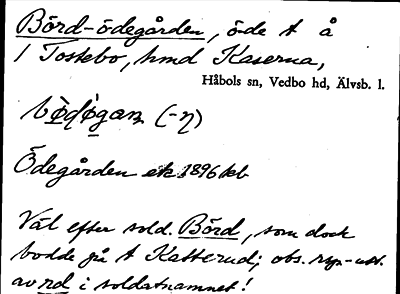 Börd-ödegården, öde t å
1 Tostebo, hmd Kaserna,
Håbols sn, Vedbo hd, Älvsb. l.
(-η)
Ödegården ek 1896 kb
Väl efter sold. Börd, som dock
bodde på t Katterud; obs. rsp-utt.
av rd i soldatnamnet!